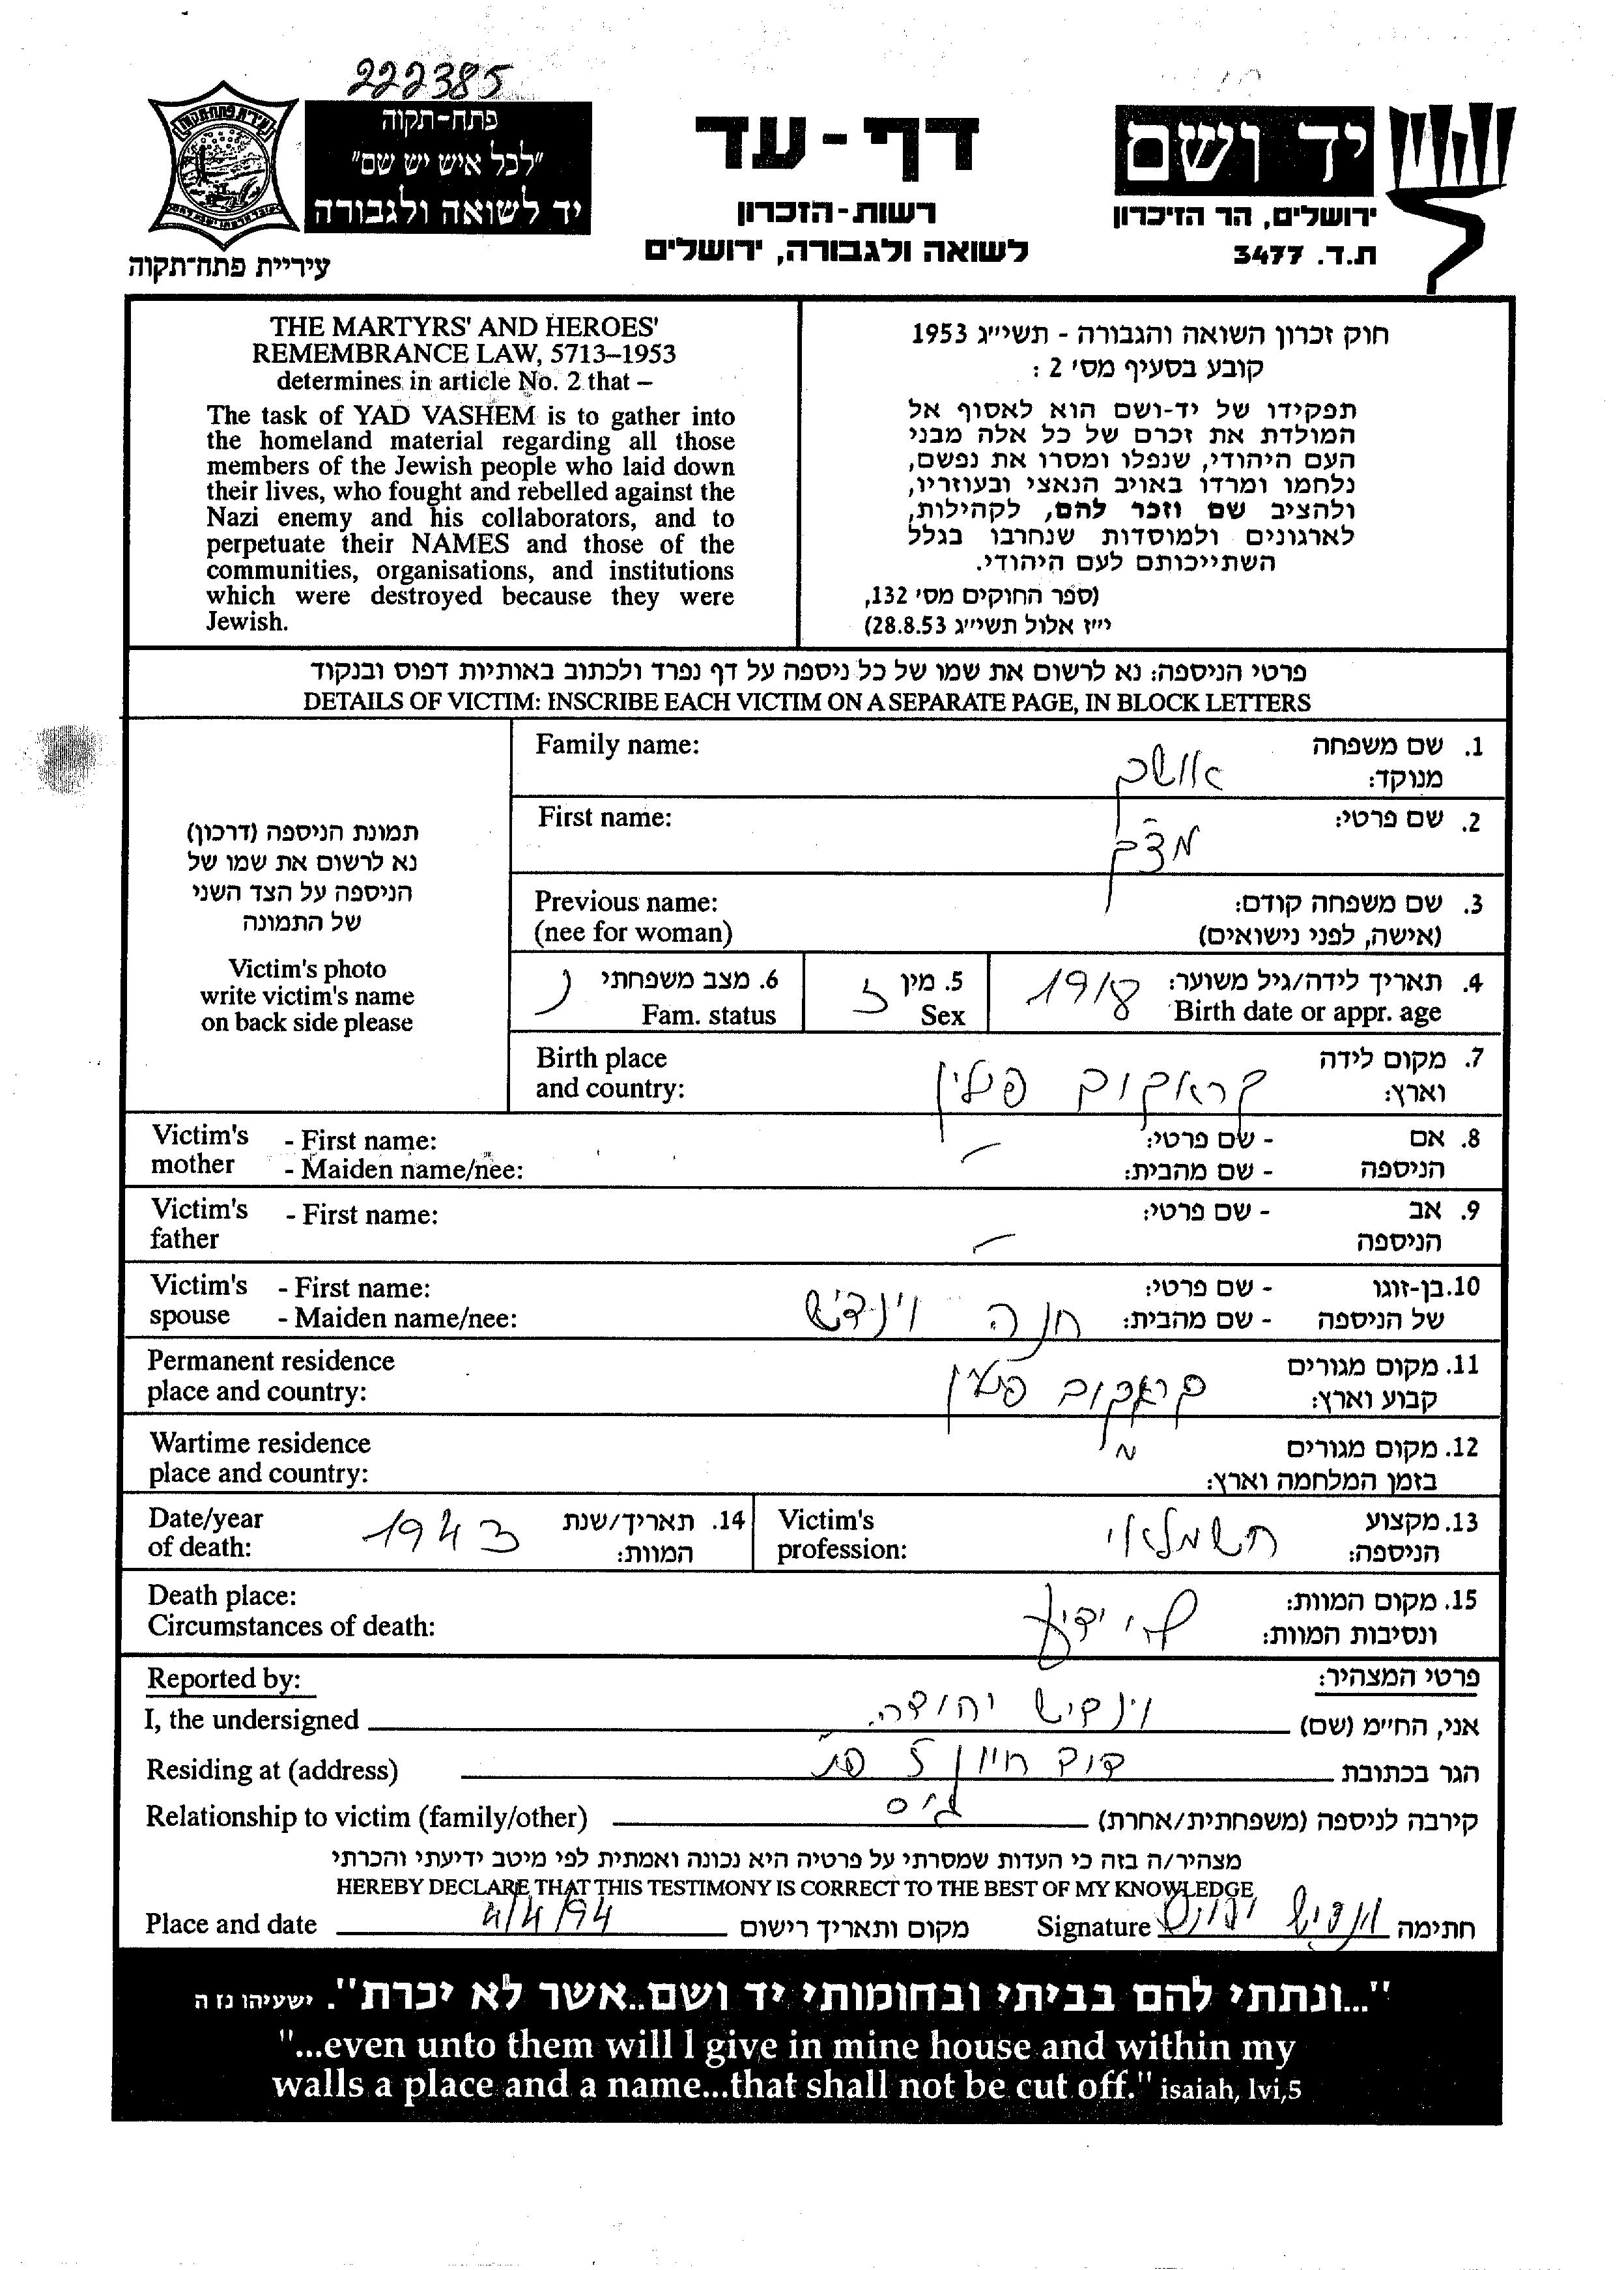 222385
פתח-תקוה
"לכל איש יש שם"
יד לשואה ולגבורה
עיריית פתח-תקוה
דף-עד
רשות-הזכרון
לשואה ולגבורה, ירושלים
יד ושם
ירושלים, הר הזיכרון
ת.ד. 3477
THE MARTYRS' AND HEROES'
REMEMBRANCE LAW, 5713–1953
determines in article No. 2 that –
The task of YAD VASHEM is to gather into
the homeland material regarding all those
members of the Jewish people who laid down
their lives, who fought and rebelled against the
Nazi enemy and his collaborators, and to
perpetuate their NAMES and those of the
communities, organisations, and institutions
which were destroyed because they were
Jewish.
חוק זכרון השואה והגבורה - תשי״ג 1953
קובע בסעיף מס׳ 2 :
תפקידו של יד-ושם הוא לאסוף אל
המולדת את זכרם של כל אלה מבני
העם היהודי, שנפלו ומסרו את נפשם,
נלחמו ומרדו באויב הנאצי ובעוזריו,
ולהציב שם וזכר להם, לקהילות,
לארגונים ולמוסדות שנחרבו בגלל
השתייכותם לעם היהודי.
(ספר החוקים מס׳ 132,
י״ז אלול תשי״ג 28.8.53)
פרטי הניספה: נא לרשום את שמו של כל ניספה על דף נפרד ולכתוב באותיות דפוס ובנקוד
DETAILS OF VICTIM: INSCRIBE EACH VICTIM ON A SEPARATE PAGE, IN BLOCK LETTERS
תמונת הניספה (דרכון)
נא לרשום את שמו של
הניספה על הצד השני
של התמונה
Victim's photo
write victim's name
on back side please
Family name:
1. שם משפחה
מנוקד:
First name:
2. שם פרטי:
Previous name:
(nee for woman)
3. שם משפחה קודם:
(אישה, לפני נישואים)
4. תאריך לידה/גיל משוער: 1918
Birth date or appr. age
5. מין ז
Sex
6. מצב משפחתי נ
Fam. status
Birth place
and country:
7. מקום לידה
וארץ: קראקוב פולין
Victim's mother - First name:
- Maiden name/nee:
8. אם הניספה - שם פרטי: –
- שם מהבית:
Victim's father - First name:
9. אב הניספה - שם פרטי: –
Victim's spouse - First name:
- Maiden name/nee:
10. בן-זוגו - שם פרטי:
של הניספה - שם מהבית: חנה וינדיש
Permanent residence
place and country:
11. מקום מגורים
קבוע וארץ: קראקוב פולין
Wartime residence
place and country:
12. מקום מגורים
בזמן המלחמה וארץ:
Date/year
of death:
14. תאריך/שנת
המוות: 1943
Victim's
profession:
13. מקצוע
הניספה: חשמלאי
Death place:
Circumstances of death:
15. מקום המוות:
ונסיבות המוות: לא ידוע
Reported by:
פרטי המצהיר:
I, the undersigned
אני, החי״מ (שם) וינדיש יהודה
Residing at (address)
הגר בכתובת
Relationship to victim (family/other)
קירבה לניספה (משפחתית/אחרת) גיס
מצהיר/ה בזה כי העדות שמסרתי על פרטיה היא נכונה ואמתית לפי מיטב ידיעתי והכרתי
HEREBY DECLARE THAT THIS TESTIMONY IS CORRECT TO THE BEST OF MY KNOWLEDGE
Place and date 4/4/94 מקום ותאריך רישום
Signature וינדיש יהודה חתימה
"...ונתתי להם בביתי ובחומותי יד ושם..אשר לא יכרת". ישעיהו נז ה
"...even unto them will I give in mine house and within my
walls a place and a name...that shall not be cut off." isaiah, lvi,5